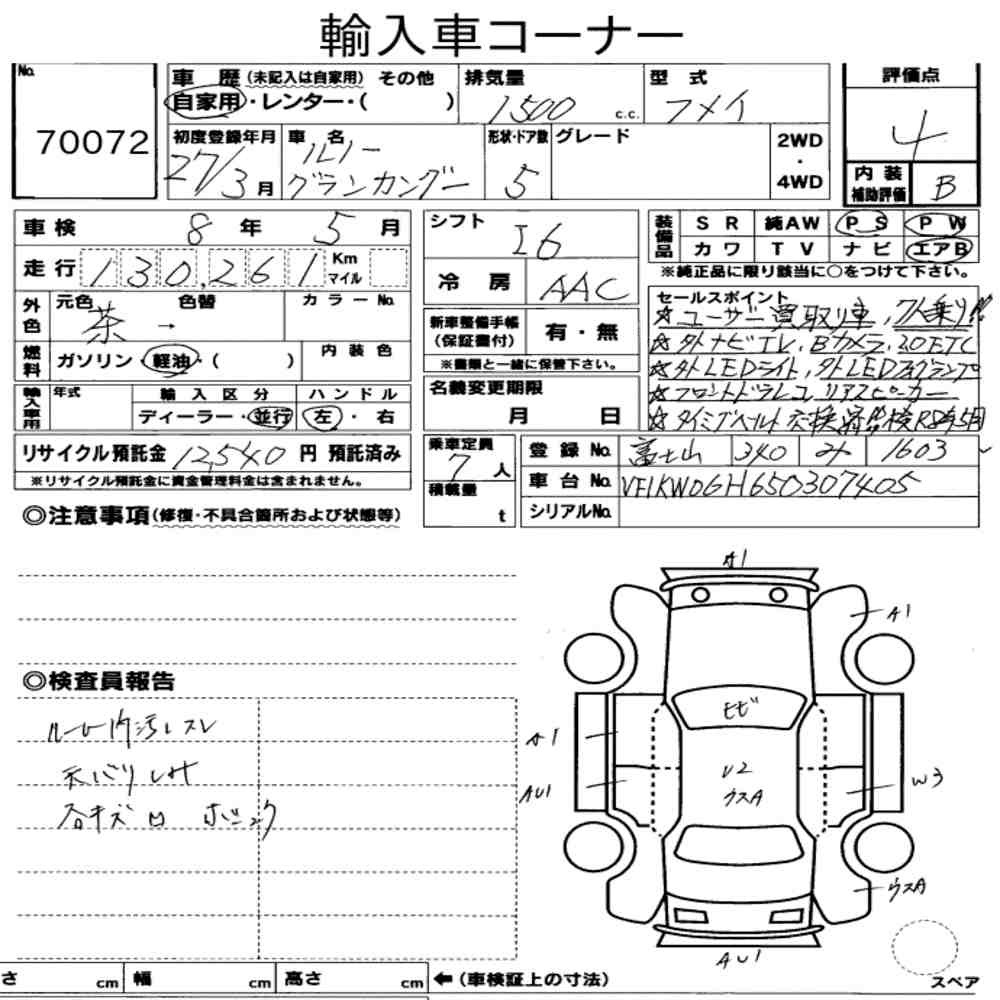 輸入車コーナー
No. 70072
車歴(未記入は自家用) その他
自家用・レンター・( )
排気量 1500 c.c.
型式 フメイ
評価点 4
内装補助評価 B
初度登録年月 27/3月
車名 ルノー グランカングー
形状・ドア数 5
グレード
2WD・4WD
車検 8年 5月
走行 130,261 Km マイル
外色 元色 茶 → 色替
カラーNo.
燃料 ガソリン・軽油・( )
内装色
輸入車用 年式
輸入区分 ディーラー・並行
ハンドル 左・右
リサイクル預託金 12,540円 預託済み
※リサイクル預託金に資金管理料金は含まれません。
シフト I6
冷房 AAC
新車整備手帳(保証書付) 有・無
※書類と一緒に保管下さい。
名義変更期限 月 日
乗車定員 7人
積載量 t
装備品 SR 純AW PS PW
カワ TV ナビ エアB
※純正品に限り該当に○をつけて下さい。
セールスポイント
☆ユーザー買取り車, 7人乗り!!
☆外ナビTV, Bカメラ, 2.0ETC
☆外LEDライト, 外LEDフォグランプ
☆フロントドラレコ リアスピーカー
☆タイミングベルト交換済!!検R8年5月
登録No. 富士山 340 み 1603
車台No. VF1KW0GH650307405
シリアルNo.
◎注意事項(修復・不具合箇所および状態等)
◎検査員報告
ルーム内汚レスレ
天バリ
各キズ凹
A1
A1
ヒビ
A1
AU1
U2
ウスA
W3
ウスA
AU1
スペア
さ cm 幅 cm 高さ cm ←(車検証上の寸法)